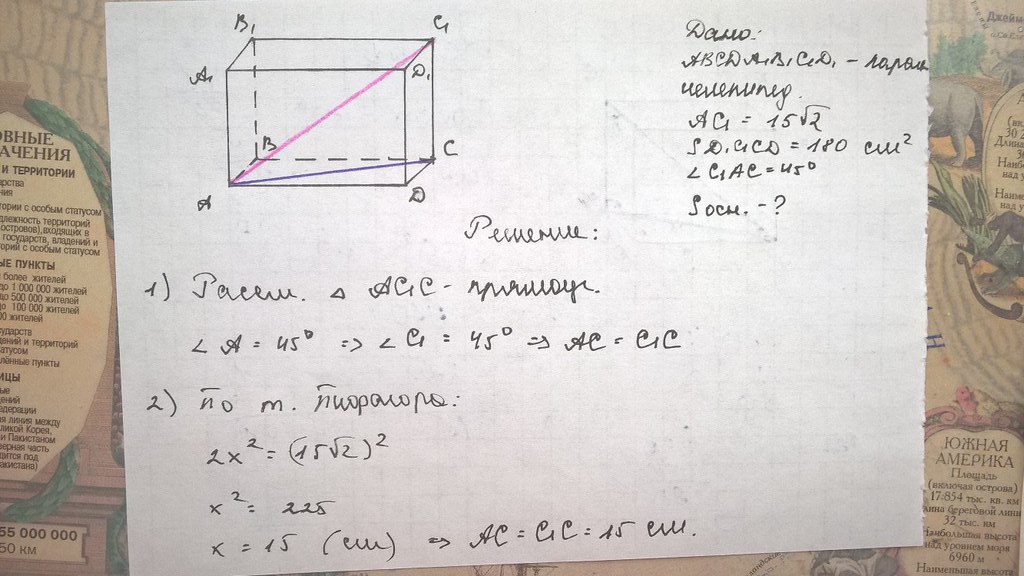 B₁
C₁
A₁
D₁
B
C
A
D
Дано:
ABCDA₁B₁C₁D₁ - парал
лелепипед.
AC₁ = 15√2
SD₁C₁CD = 180 см²
∠C₁AC = 45°
Sосн. - ?
Решение:
1) Рассм. △ AC₁C - прямоуг.
∠A = 45° => ∠C₁ = 45° => AC = C₁C
2) По т. Пифагора:
2x² = (15√2)²
x² = 225
x = 15 (см) => AC = C₁C = 15 см.
ОВНЫЕ
НАЧЕНИЯ
И ТЕРРИТОРИИ
дарства
тории с особым статусом
длежность территорий
островов), входящих в
государств, владений и
торий с особым статусом
ЫЕ ПУНКТЫ
более жителей
до 1 000 000 жителей
до 500 000 жителей
до 100 000 жителей
00 жителей
сударств
дений и территорий
татусом
лённые пункты
ИЦЫ
ные
дений
едерации
ая линия между
ликой Корея,
и Пакистаном
верная часть
дится под
акистана)
55 000 000
50 км
Джейм
Н
ЮЖНАЯ
АМЕРИКА
Площадь
(включая острова)
17 854 тыс. кв. км
лина береговой лини
32 тыс. км
Наибольшая высота
над уровнем моря
6960 м
Наименьшая высота